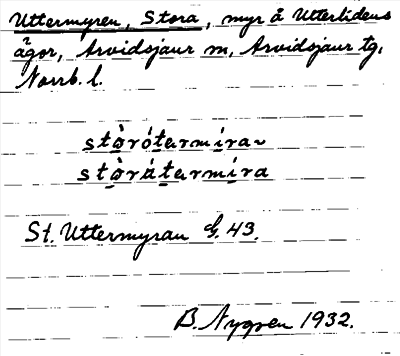 Uttermyren, Stora, myr å Utterlidens
ägor, Arvidsjaur sn, Arvidsjaur tg,
Norrb. l.
stòrótermíran
stòrátermíra
St. Uttermyran G. 43.
B. Nygren 1932.